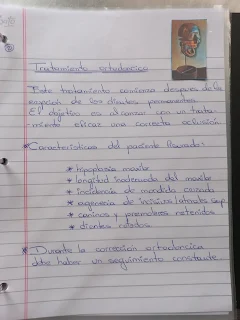 Tratamiento ortodoncico
Este tratamiento comienza despues de la
erupcion de los dientes permanentes.
El objetivo es alcanzar con un trata-
miento eficaz una correcta oclusion
* Caracteristicas del paciente fisurado:
* hipoplasia maxilar
* longitud inadecuada del maxilar
* incidencia de mordida cruzada
* agenecia de incisivos laterales sup.
* caninos y premolares retenidos
* dientes
* Durante la correccion ortodoncica
debe haber un seguimiento constante